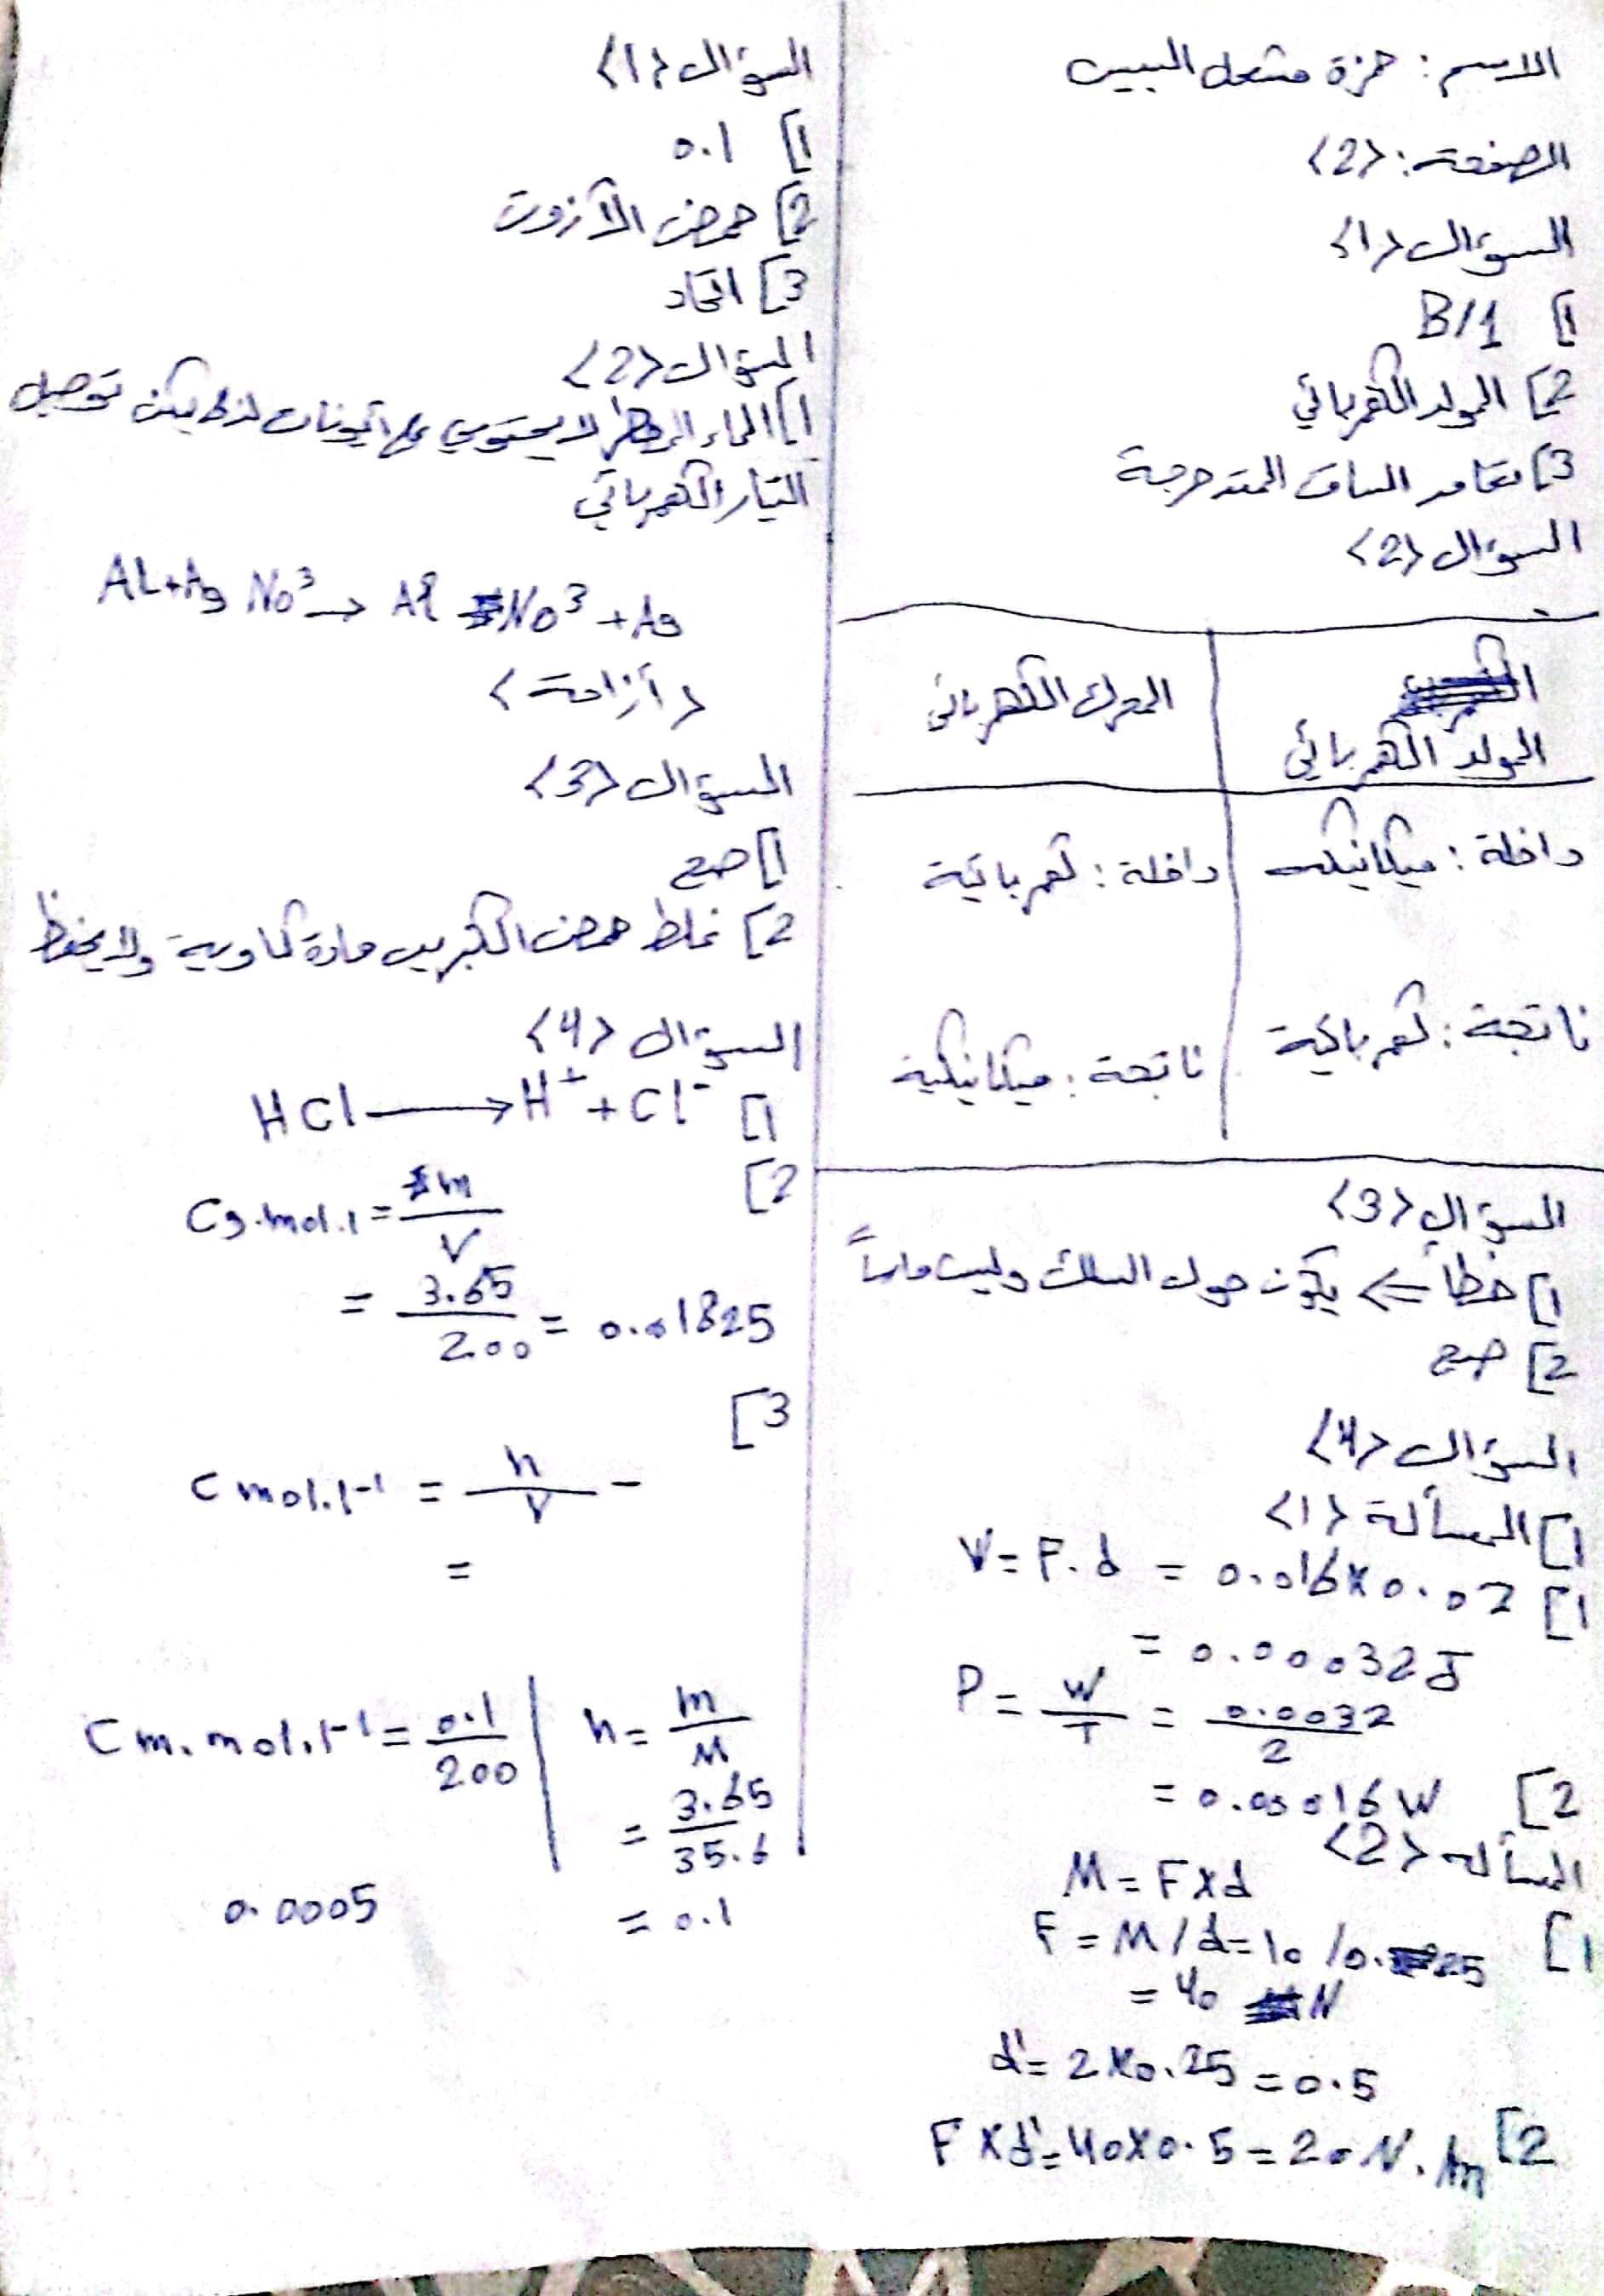 الاسم: حمزة مشعل
الصفحة: <2>
السؤال <1>
1] B/1
2] المولد الكهربائي
3] تجامد الساق المتدحرجة
السؤال <2>
المولد الكهربائي
المحرك الكهربائي
داخلة: ميكانيكية
داخلة: كهربائية
ناتجة: كهربائية
ناتجة: ميكانيكية
السؤال <3>
1] خطأ => يكون حول السلك وليس
2] صح
السؤال <4>
1] المسألة <1>
1] W = F.d = 0.016x0.02
= 0.00032J
P = W/T = 0.0032/2
2] = 0.00016W
المسألة <2>
M = Fxd
1] F = M/d = 10/0.25
= 40 N
d' = 2x0.25 = 0.5
2] Fxd' = 40x0.5 = 20 N.m
السؤال <1>
1] 0.1
2] حمض الآزوت
3] اتحاد
السؤال <2>
1] الماء المقطر لا يحتوي على أيونات لذلك يمكن توصيل
التيار الكهربائي
AL+Ag No³ → Al No³ + Ag
<أزاحة>
السؤال <3>
1] صح
2] غلط حمض الكبريت مادة كاوية ولا يحفظ
السؤال <4>
1] HCl → H⁺ + Cl⁻
2] Cg.mol.l = m/V
= 3.65/200 = 0.01825
3]
C mol.l⁻¹ = n/V –
=
n = m/M
= 3.65/35.6
= 0.1
Cm.mol.l⁻¹ = 0.1/200
0.0005